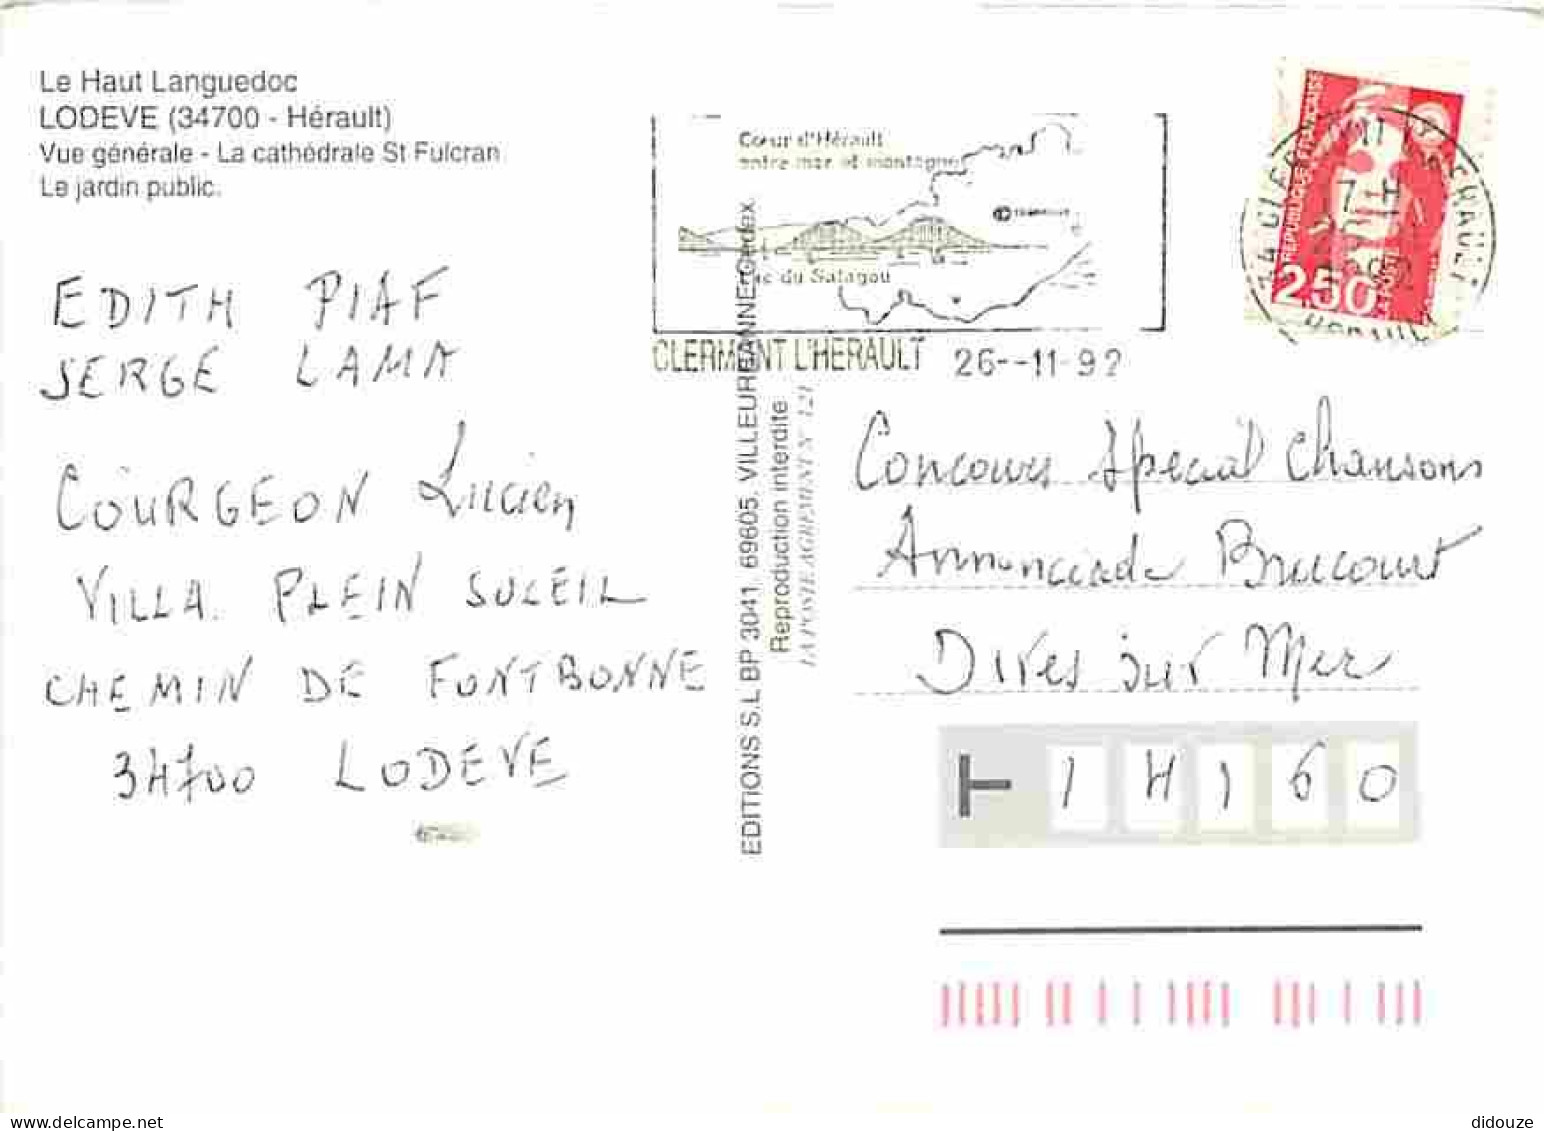 Le Haut Languedoc
LODEVE (34700 - Hérault)
Vue générale - La cathédrale St Fulcran
Le jardin public.
EDITH PIAF
SERGE LAMA
COURGEON Lucien
VILLA PLEIN SOLEIL
CHEMIN DE FONTBONNE
34700 LODEVE
EDITIONS S.L BP 3041, 69605, VILLEURBANNE Cedex
Reproduction interdite
LA POSTE AGREMENT N° 121
Cœur d'Hérault
entre mer et montagne
Lac du Salagou
CLERMONT L'HERAULT 26--11-92
REPUBLIQUE FRANÇAISE
2,50 LA POSTE
17 H
Concours Special Chansons
Annonciade Brucourt
Dives sur Mer
14160
didouze